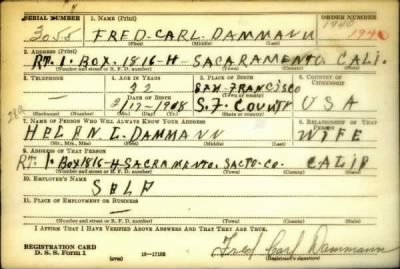 SERIAL NUMBER 1. NAME (Print) ORDER NUMBER
3055 FRED-CARL-DAMMANN 1940
(First) (Middle) (Last)
2. ADDRESS (Print)
RT-1-BOX-1816-H-SACARAMENTO, CALI.
(Number and street or R. F. D. number) (Town) (County) (State)
3. TELEPHONE 4. AGE IN YEARS 5. PLACE OF BIRTH 6. COUNTRY OF CITIZENSHIP
32 SAN FRANCISCO
DATE OF BIRTH
2/17-1908 S.F. COUNTY USA
(Exchange) (Number) (Mo.) (Day) (Yr.) (State or country)
7. NAME OF PERSON WHO WILL ALWAYS KNOW YOUR ADDRESS 8. RELATIONSHIP OF THAT PERSON
HELEN L. DAMMANN WIFE
(Mr., Mrs., Miss) (First) (Middle) (Last)
9. ADDRESS OF THAT PERSON
RT. 1-BOX 1816-H-SACRAMENTO, SACTO-CO. CALIF
(Number and street or R. F. D. number) (Town) (County) (State)
10. EMPLOYER'S NAME
SELF
11. PLACE OF EMPLOYMENT OR BUSINESS
(Number and street or R. F. D. number) (Town) (County) (State)
I AFFIRM THAT I HAVE VERIFIED ABOVE ANSWERS AND THAT THEY ARE TRUE.
REGISTRATION CARD
D. S. S. Form 1 16—17105 Fred Carl Dammann
(Registrant's signature)